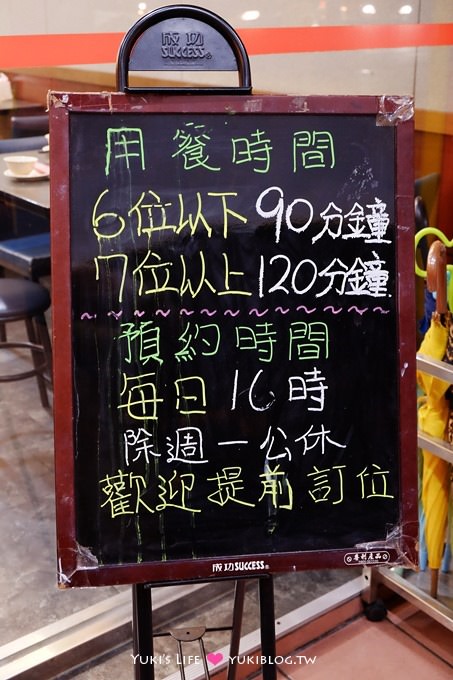 成功
SUCCESS®
用餐時間
6位以下 90分鐘
7位以上 120分鐘
預約時間
每日 16時
除週一公休
歡迎提前訂位
成功 SUCCESS®
專利產品
YUKI'S LIFE YUKIBLOG.TW